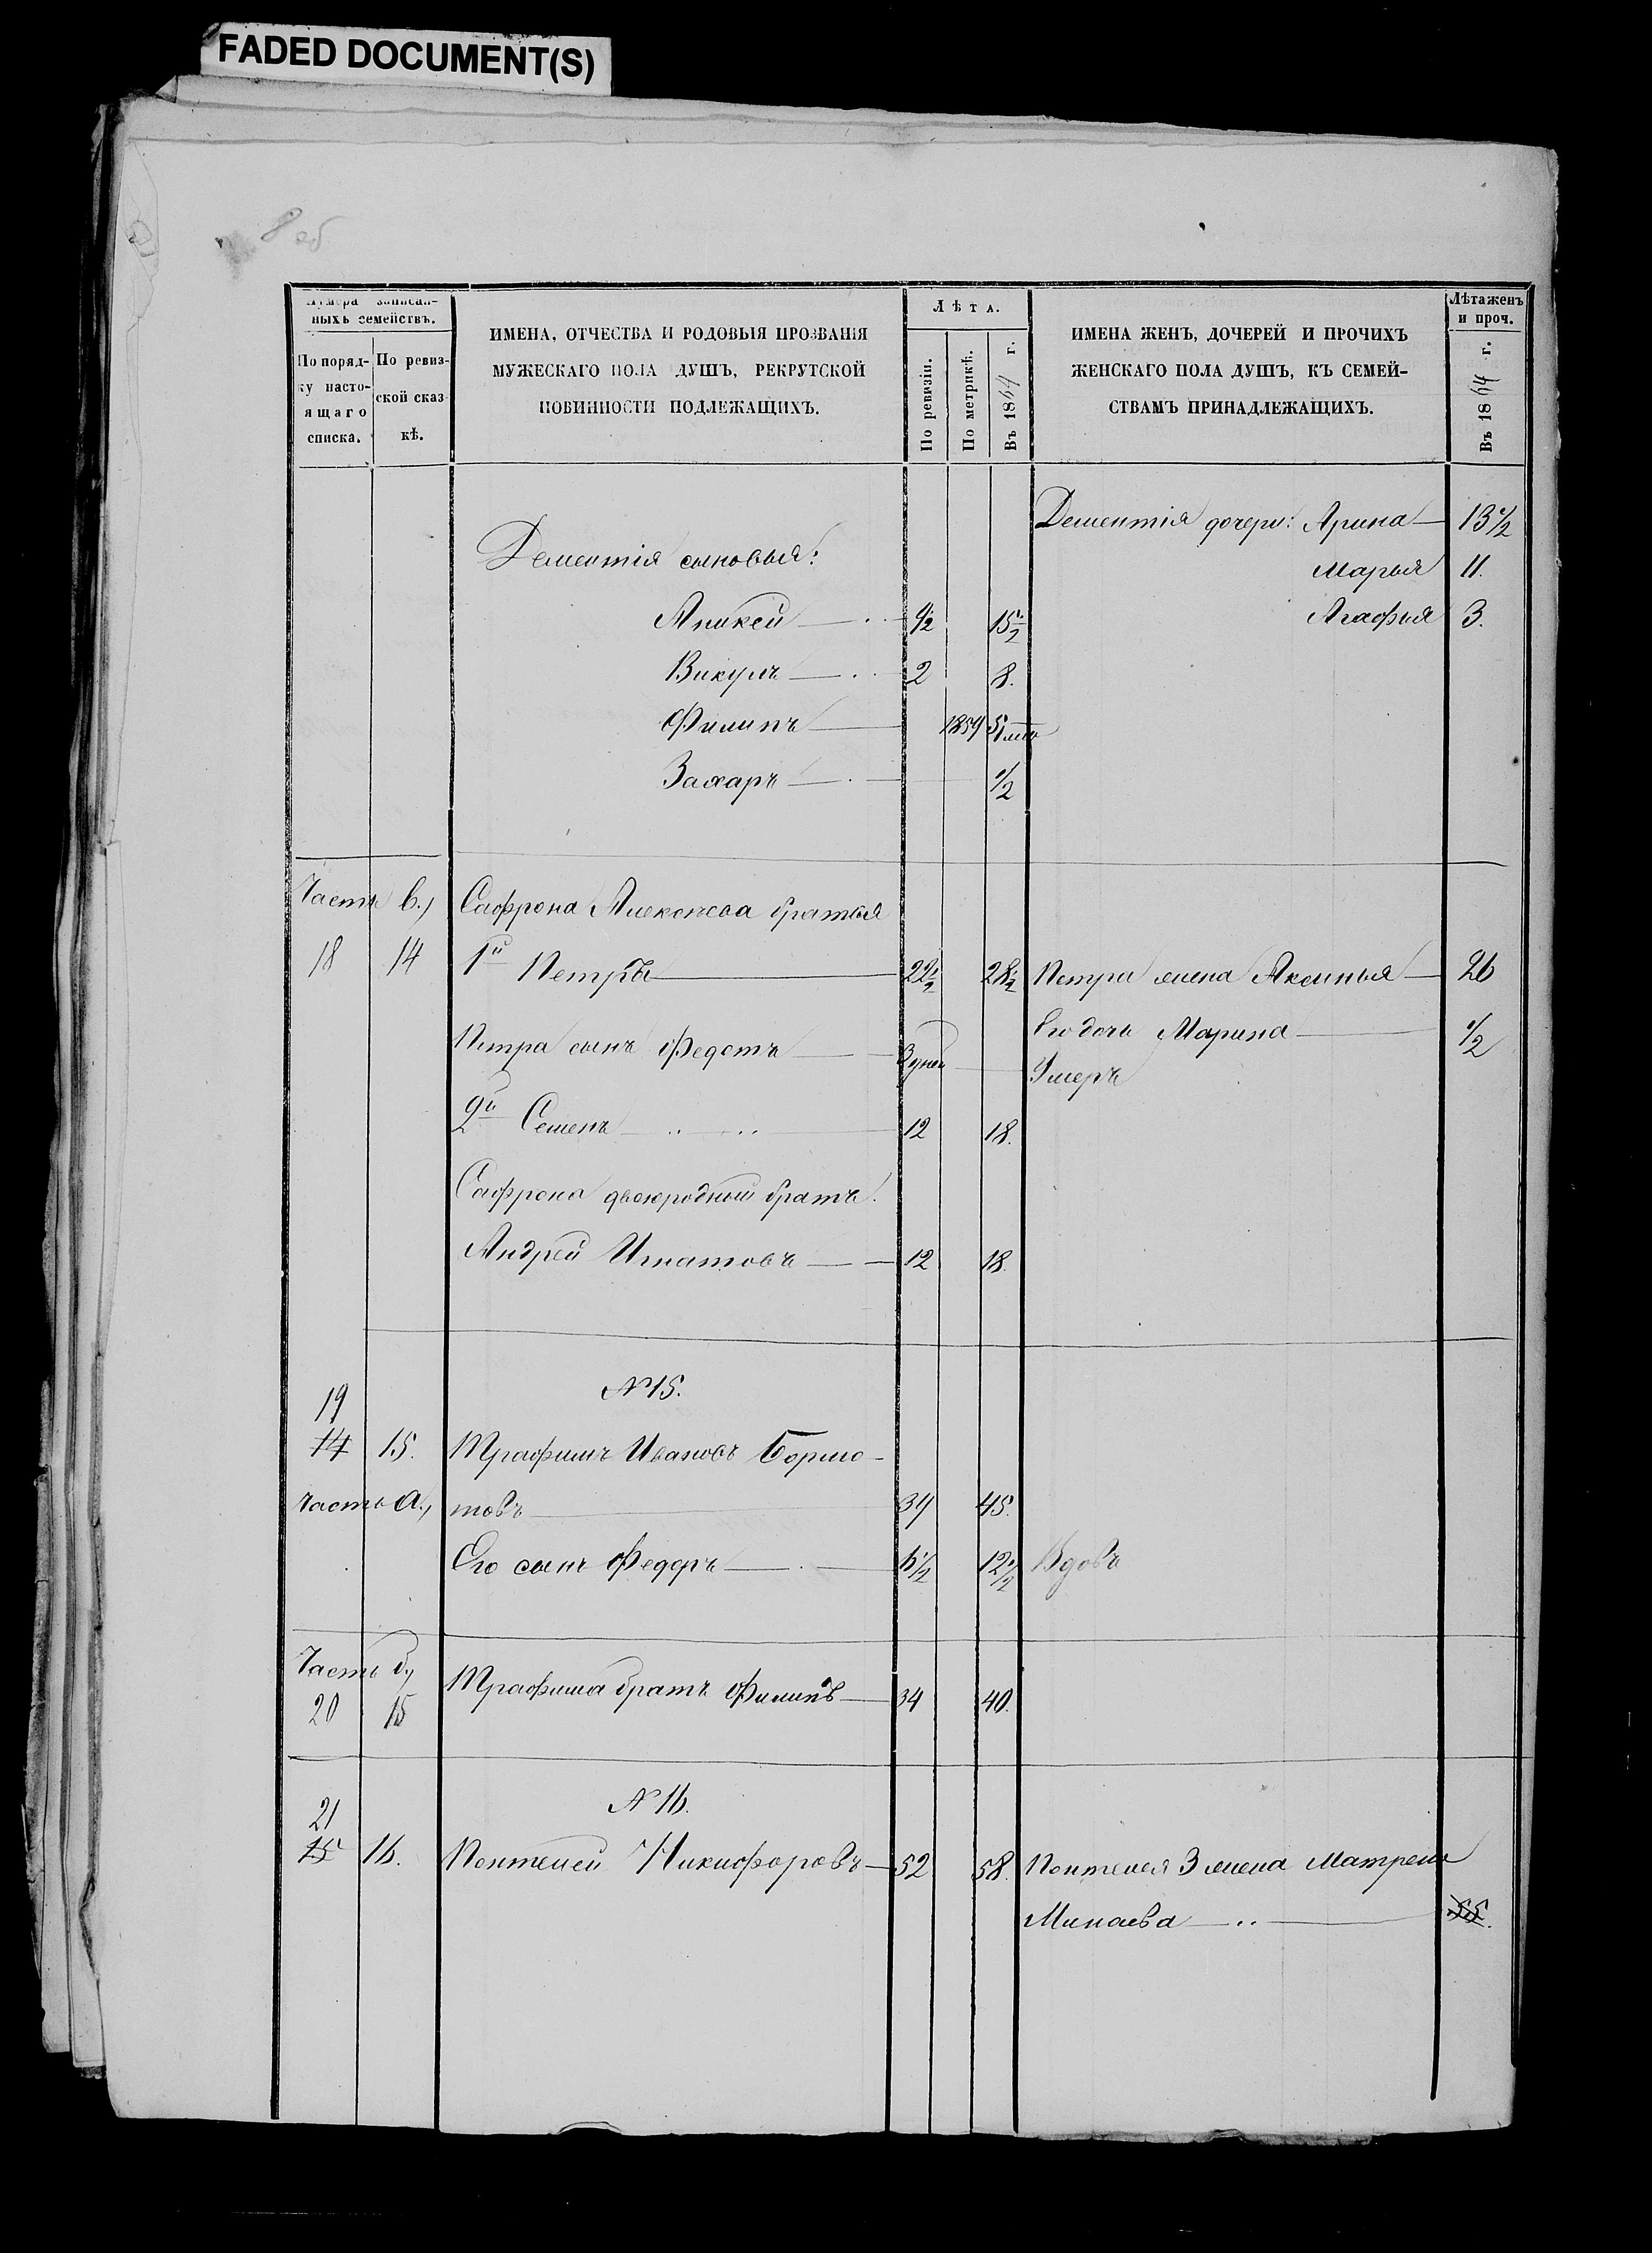 FADED DOCUMENT(S)
8 об
Нумера записан-
ныхъ семействъ.
По поряд-
ку насто-
ящаго
списка.
По ревиз-
ской сказ-
кѣ.
ИМЕНА, ОТЧЕСТВА И РОДОВЫЯ ПРОЗВАНІЯ
МУЖЕСКАГО ПОЛА ДУШЪ, РЕКРУТСКОЙ
ПОВИННОСТИ ПОДЛЕЖАЩИХЪ.
Лѣта.
По ревизіи.
По метрикѣ.
Въ 1864 г.
ИМЕНА ЖЕНЪ, ДОЧЕРЕЙ И ПРОЧИХЪ
ЖЕНСКАГО ПОЛА ДУШЪ, КЪ СЕМЕЙ-
СТВАМЪ ПРИНАДЛЕЖАЩИХЪ.
Лѣта женъ
и проч.
Въ 1864 г.
Дементія дочери: Арина 13 1/2
Дементія сыновья:
Марья 11.
Аникей 9 1/2 15 1/2
Агафья 3.
Викулъ 2 8.
Филипъ 1859 5
Захаръ 1/2
Часть в.,
Сафрона Алексѣева братья
18 14 1й Петръ 22 1/2 28 1/2 Петра жена Аксинья 26
Его дочь Марина 1/2
Петра сынъ Федотъ 3 дней Умеръ
2й Семенъ 12 18.
Сафрона двоюродный братъ.
Андрей Игнатовъ 12 18.
19
№ 15.
14 15. Трафимъ Ивановъ Бормо-
часть а., товъ 39 45.
Его сынъ Федоръ 6 1/2 12 1/2 Вдовъ
Часть б.,
20 15 Трафима братъ Филипъ 34 40.
21
№ 16.
15 16. Пантелей Никифоровъ 52 58. Пантелея 3 жена Матрена
Минаева 55.